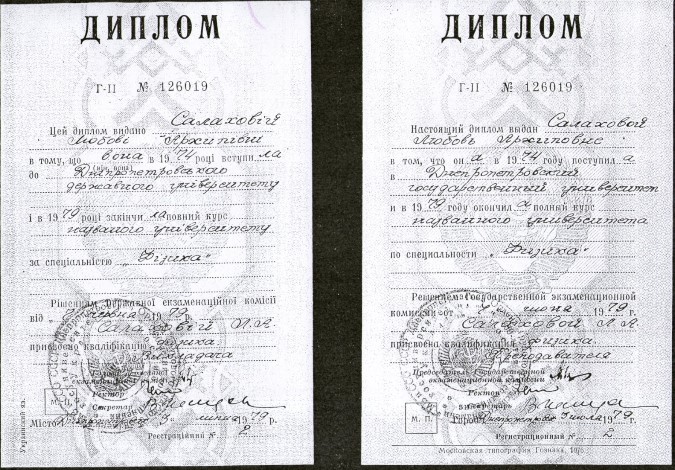 ДИПЛОМ
Г-II № 126019
Цей диплом видано Салаховій
Любові Архипівні
в тому, що вона в 1974 році вступила
(він, вона)
до Дніпропетровського
державного університету
і в 1979 році закінчила повний курс
названого університету
за спеціальністю „Фізика“
Рішенням Державної екзаменаційної комісії
від червня 1979 р.
Салаховій Л.А.
присвоєно кваліфікацію фізика.
Викладача
Голова Державної
екзаменаційної комісії
Ректор
Секретар
М. П.
Місто Дніпропетровськ 3 липня 1979 р.
Реєстраційний № 2
Украинский яз.
ДИПЛОМ
Г-II № 126019
Настоящий диплом выдан Салаховой
Любовь Архиповне
в том, что она в 1974 году поступила
в Днепропетровский
государственный университет
и в 1979 году окончила полный курс
названного университета
по специальности „Физика“
Решением Государственной экзаменационной
комиссии от июня 1979 г.
Салаховой Л.А.
присвоена квалификация физика.
Преподавателя
Председатель Государственной
экзаменационной комиссии
Ректор
Секретарь
М. П.
Город Днепропетровск 3 июля 1979 г.
Регистрационный № 2
Московская типография Гознака.